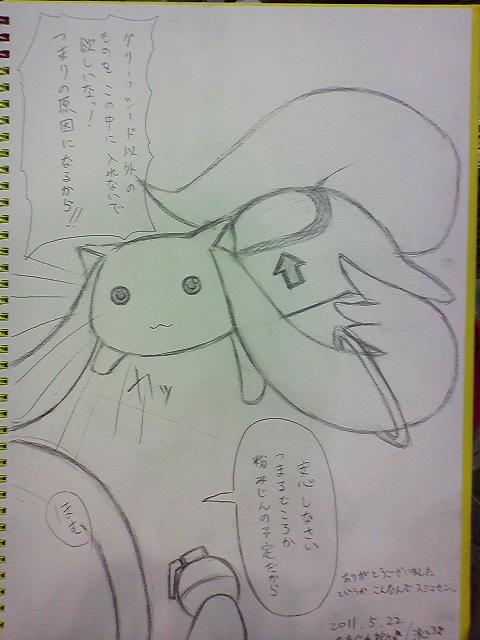 グリーフシード以外の
ものを この中に 入れないで
欲しいなっ!
つまりの原因になるから!!
カッ
安心しなさい
つまるどころか
粉みじんの予定だから
ほむ
ありがとうございました。
というか こんなんで スミマセン。
2011.5.22